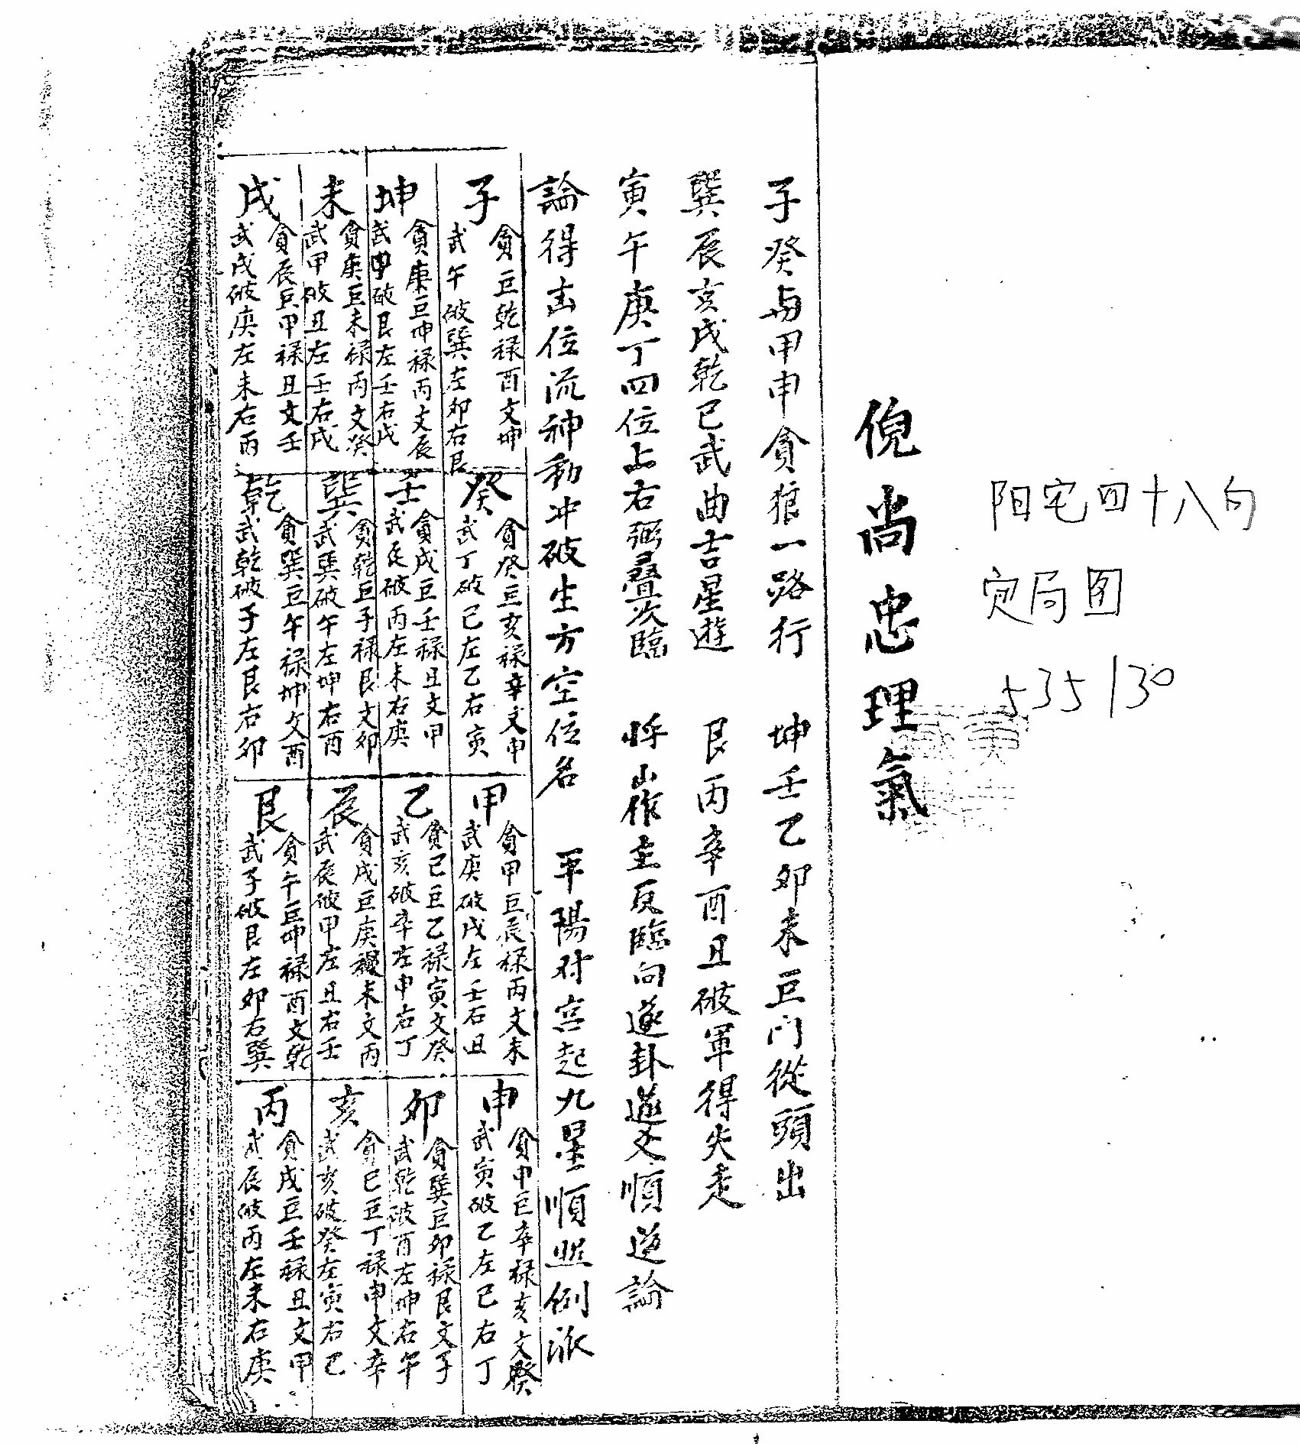 阳宅四十八向
定局图
535 130
倪尚忠理氣
子癸与甲申貪狼一路行 坤壬乙卯未巨门從頭出
巽辰亥戌乾巳武曲吉星遊 艮丙辛酉丑破軍得失走
寅午庚丁四位上右弼叠次臨 将山作主反臨向遂卦遂爻順逆論
論得去位流神動冲破生方空位名 平陽对宮起九星順照例派
子 貪巨乾禄酉文坤
武午破巽左卯右艮
癸 貪癸巨亥禄辛文申
武丁破己左乙右寅
甲 貪甲巨辰禄丙文未
武庚破戌左壬右丑
申 貪申巨辛禄亥文癸
武寅破乙左巳右丁
坤 貪庚巨坤禄丙文辰
武甲破艮左壬右戌
壬 貪戌巨壬禄丑文甲
武辰破丙左未右庚
乙 貪巳巨乙禄寅文癸
武亥破辛左申右丁
卯 貪巽巨卯禄艮文子
武乾破酉左坤右午
未 貪庚巨未禄丙文癸
武甲破丑左壬右戌
巽 貪乾巨子禄艮文卯
武巽破午左坤右酉
辰 貪戌巨庚禄未文丙
武辰破甲左丑右壬
亥 貪巳巨丁禄申文辛
武亥破癸左寅右己
戌 貪辰巨甲禄丑文壬
武戌破庚左未右丙
乾 貪巽巨午禄坤文酉
武乾破子左艮右卯
艮 貪午巨坤禄酉文乾
武子破艮左卯右巽
丙 貪戌巨壬禄丑文甲
武辰破丙左未右庚